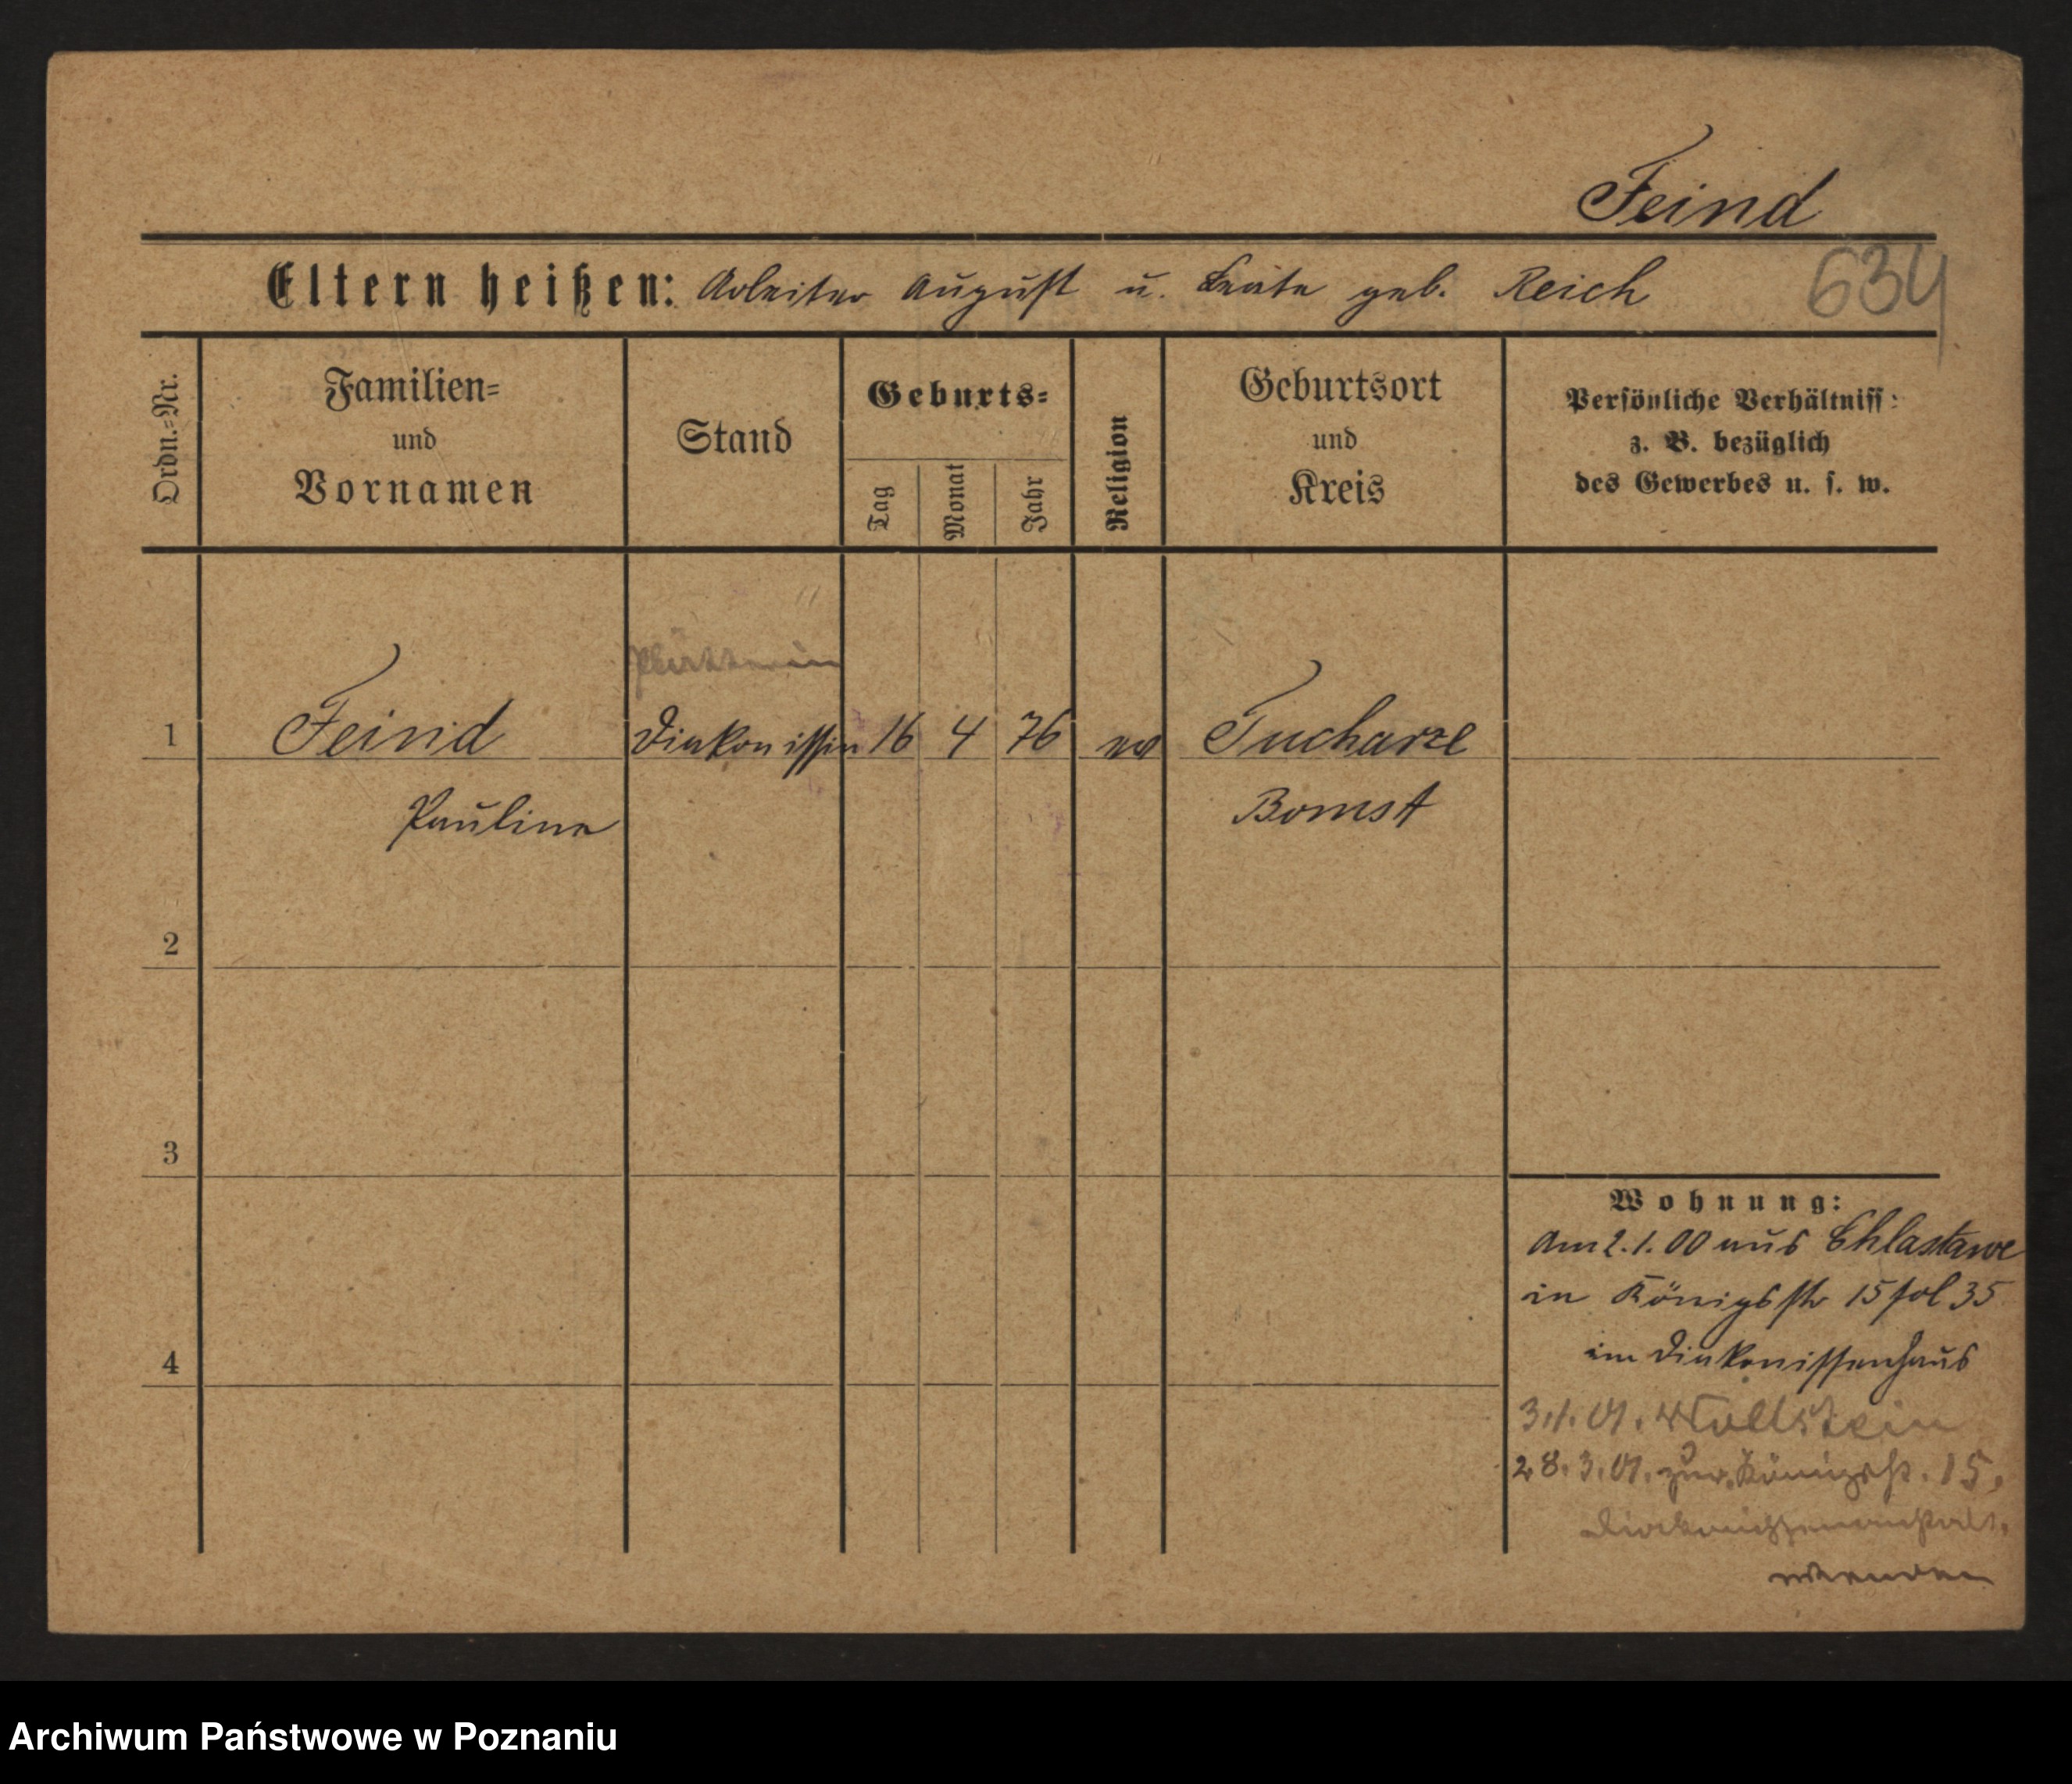 Feind
Eltern heißen: Arbeiter August u. Beate geb. Reich
634
Ordn.-Nr.
Familien-
und
Vornamen
Stand
Geburts-
Tag
Monat
Jahr
Religion
Geburtsort
und
Kreis
Persönliche Verhältniss:
z. B. bezüglich
des Gewerbes u. s. w.
Plätterin
1 Feind Diakonissin 16 4 76 ev Tucharze
Pauline Bomst
2
3
Wohnung:
Am 2.1.00 aus Chlastawe
in Königsstr 15 fol 35
im Diakonissenhaus
4
3.1.01. Wollstein
28.3.01. zur. Königsst. 15,
Diakonissenanstalt.
wenden
Archiwum Państwowe w Poznaniu